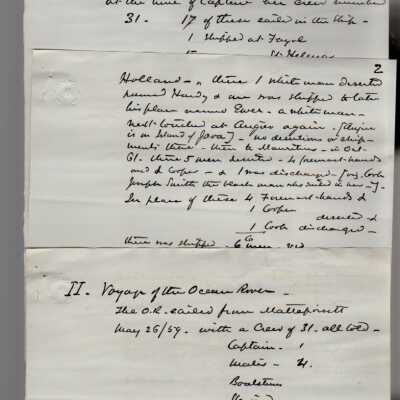 at the time of Captain her Crew number
31. 17 of these sailed in the Ship -
1 Shipped at Fayal
St Helena
2
Holland - " there 1 white man deserted
named Hardy & one was shipped to take
his place named Ewer. a white man -
next touched at Angier again. [Angier
is on Island of Java] - no desertions or ship-
ments there - then to Mauritius - in Oct
61. there 5 men deserted - 4 foremast hands
and 1 Cooper - & 1 was discharged - [orig. Cook
Joseph Smith the black man who sailed in her -].
In place of these 4 Foremast hands &
1 Cooper
deserted &
1 Cook discharged -
6
there was shipped - 6 men
II. Voyage of the Ocean Rover -
The O.R. sailed from Mattapoisett
May 26/59. with a Crew of 31. all told -
Captain. 1
Mates - 4.
Boatsteers